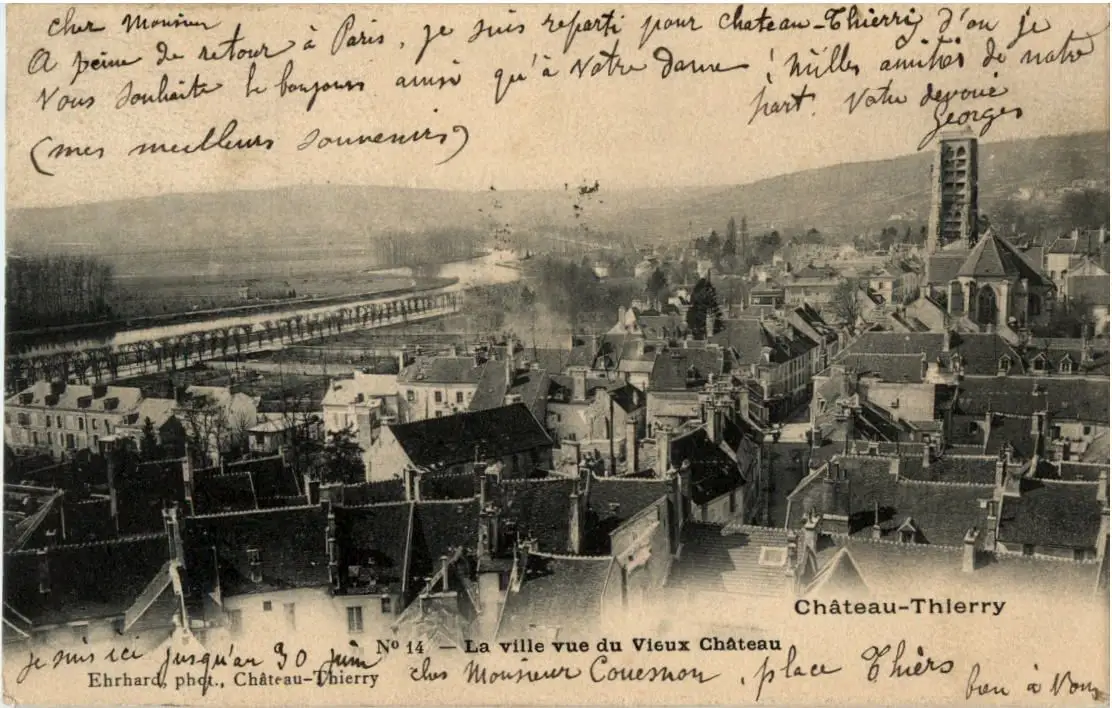 cher Monsieur
A peine de retour à Paris, je suis reparti pour chateau-Thierri d'ou je
vous souhaite le bonjour ainsi qu'à votre dame ! Milles amitiés de notre
part. Votre devoué
Georges
(mes meilleurs souvenirs)
Château-Thierry
No 14 — La ville vue du Vieux Château
je suis ici jusqu'au 30 juin
Ehrhard, phot., Château-Thierry
chez Monsieur Couesnon, place Thiers
bien à vous